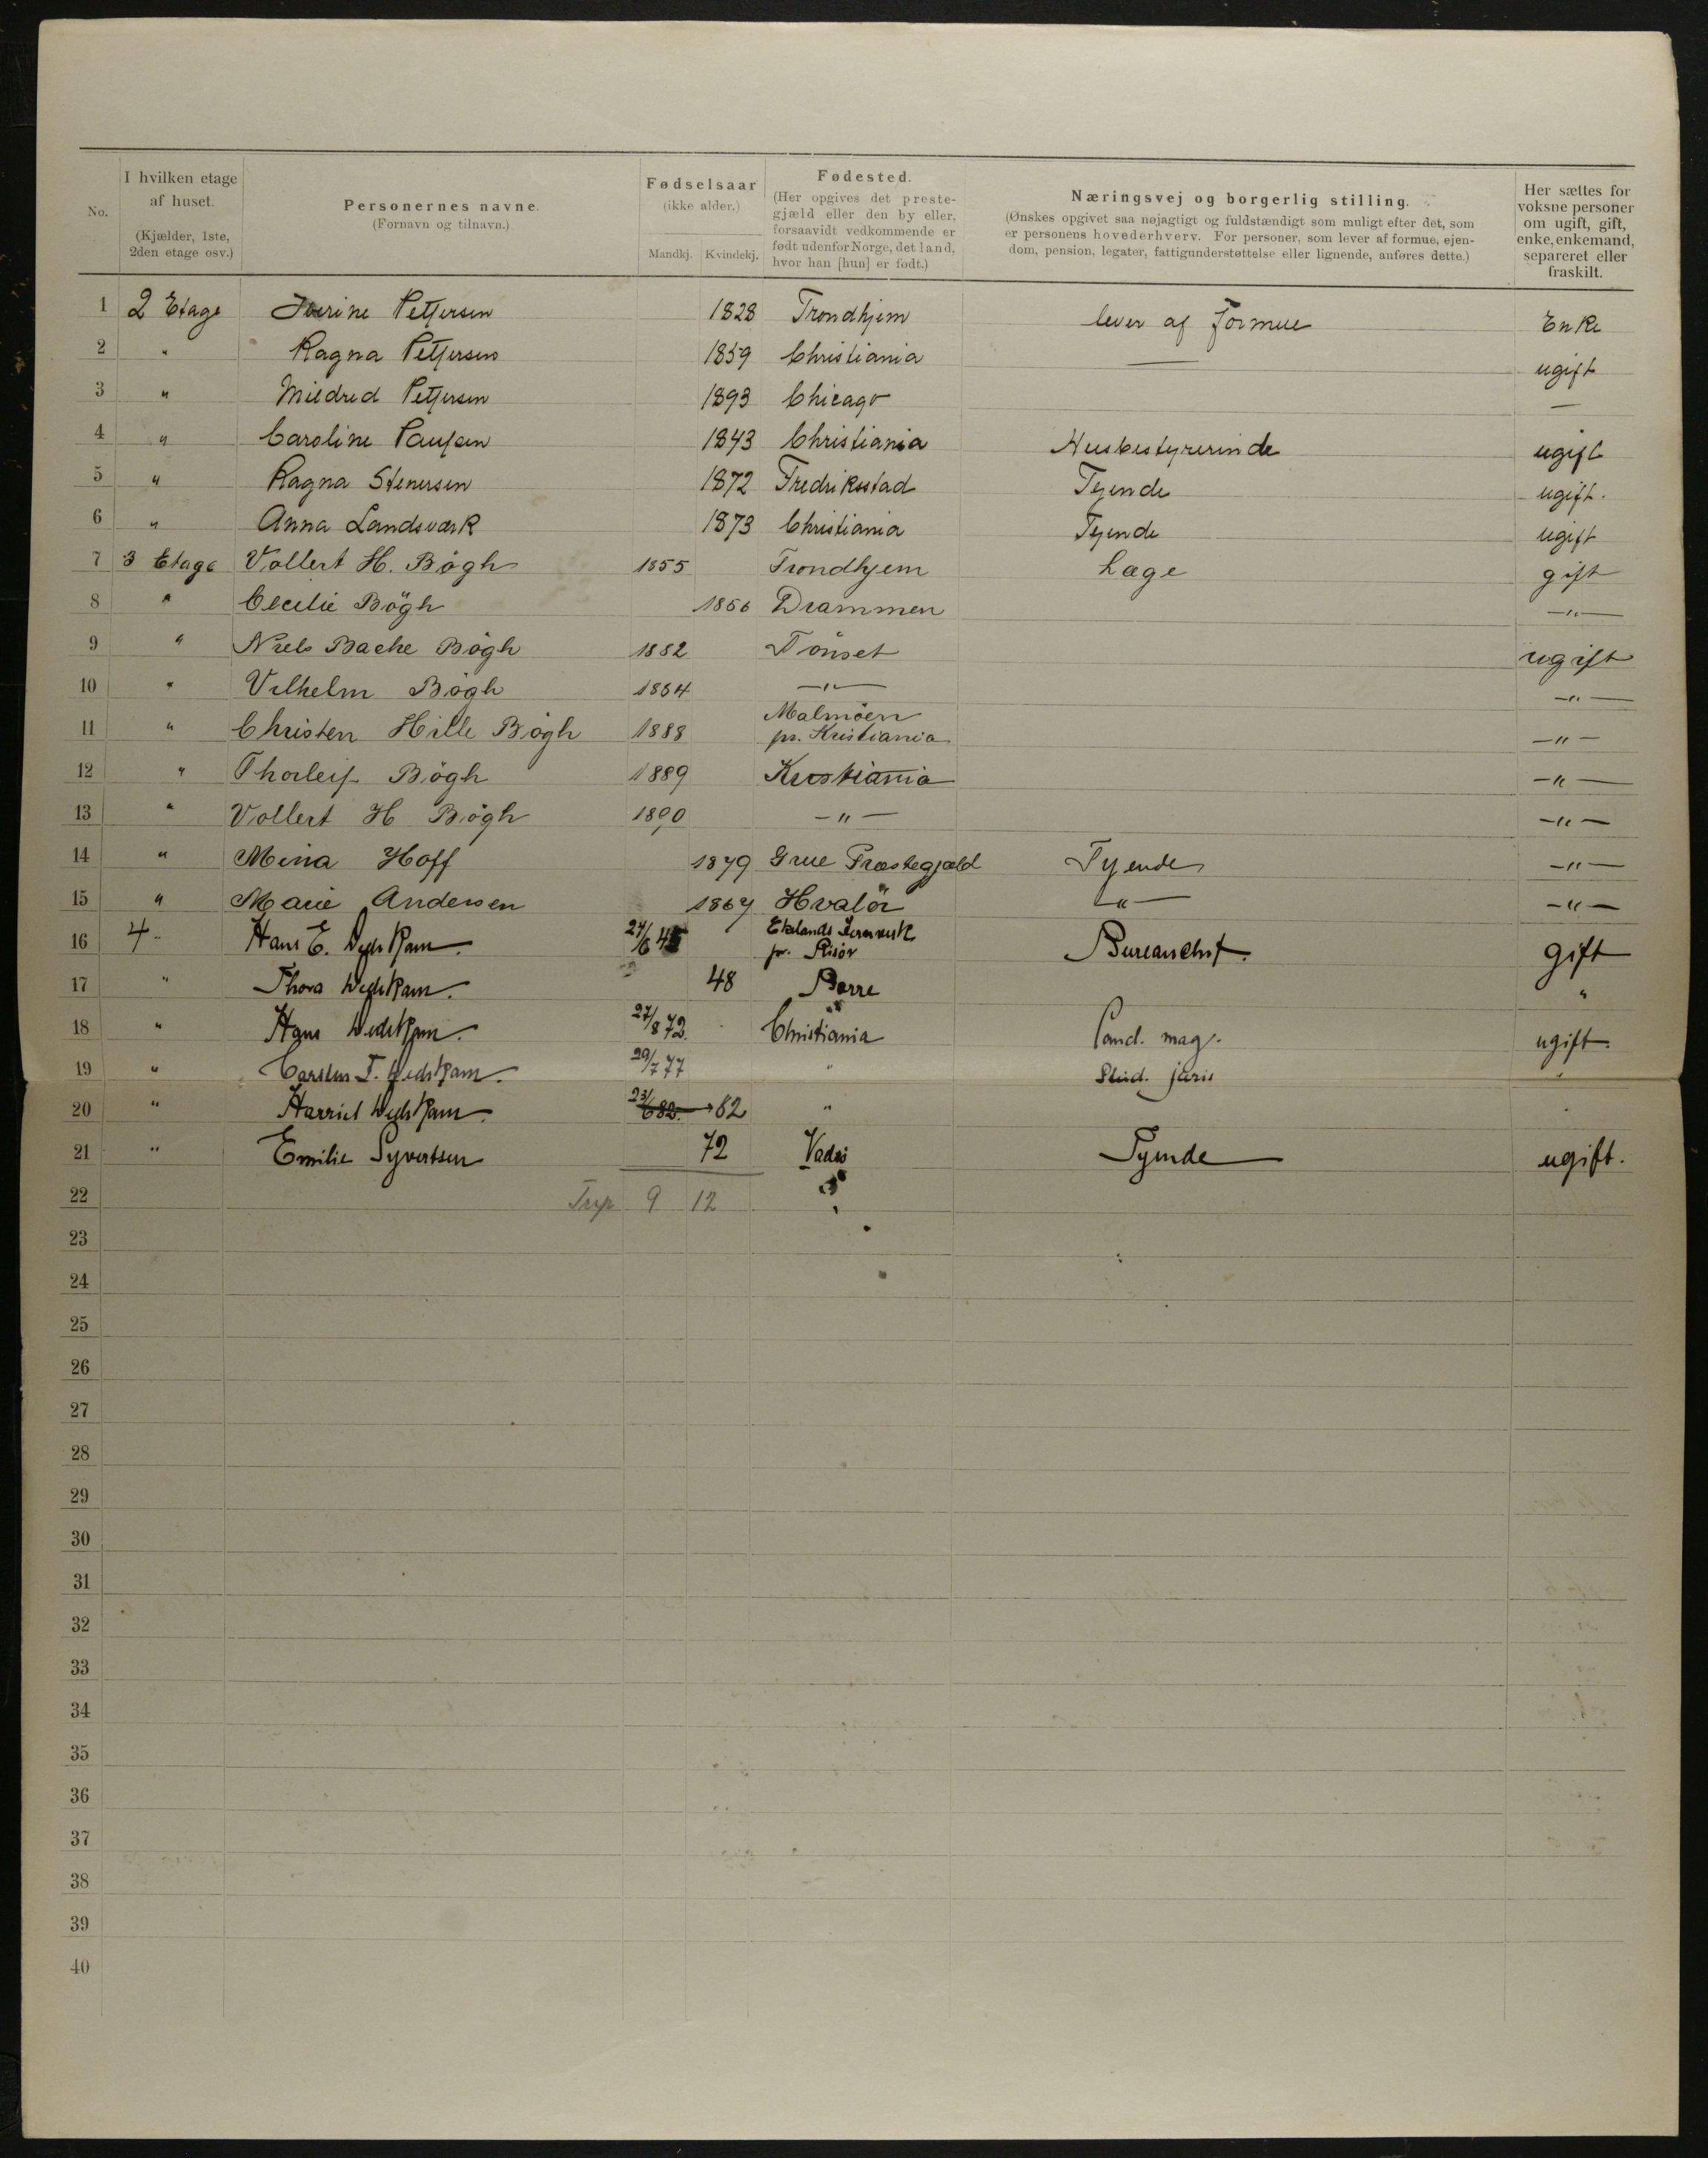 No.
I hvilken etage
af huset.
(Kjælder, 1ste,
2den etage osv.)
Personernes navne.
(Fornavn og tilnavn.)
Fødselsaar
(ikke alder.)
Mandkj. Kvindekj.
Fødested.
(Her opgives det preste-
gjæld eller den by eller,
forsaavidt vedkommende er
født udenfor Norge, det land,
hvor han [hun] er født.)
Næringsvej og borgerlig stilling.
(Ønskes opgivet saa nøjagtigt og fuldstændigt som muligt efter det, som
er personens hovederhverv. For personer, som lever af formue, ejen-
dom, pension, legater, fattigunderstøttelse eller lignende, anføres dette.)
Her sættes for
voksne personer
om ugift, gift,
enke, enkemand,
separeret eller
fraskilt.
1 2 Etage Iverine Pettersen 1828 Trondhjem lever af Formue Enke
2 " Ragna Pettersen 1859 Christiania — ugift
3 " Mildred Pettersen 1893 Chicago —
4 " Caroline Paulsen 1843 Christiania Husbestyrerinde ugift
5 " Ragna Stenersen 1872 Fredriksstad Tjende ugift.
6 " Anna Landsværk 1873 Christiania Tjende ugift
7 3 Etage Vollert H. Bøgh 1855 Trondhjem Læge gift
8 " Cecilie Bögh 1856 Drammen —"—
9 " Niels Bache Bøgh 1882 Tönset ugift
10 " Vilhelm Bøgh 1884 —"— —"—
11 " Christen Hille Bøgh 1888 Malmöen
pr. Kristiania —"—
12 " Thorleif Bøgh 1889 Kristiania —"—
13 " Vollert H Bøgh 1890 —"— —"—
14 " Mina Hoff 1879 Grue Præstegjæld Tyende —"—
15 " Marie Andersen 1867 Hvalör —"— —"—
16 4 - Hans E. 24/6 45 Egelands Jernverk
pr. Risør Bureauchef. gift
17 " Thora 48 Borre "
18 " Hans 27/8 72. Christiania Cand. mag. ugift.
19 " Carsten T. 29/7 77 " Stud. juris "
20 " Harriet 23/6 82. 82 " "
21 " Emilie Syvertsen 72 Vadsö Tyende ugift.
22 9 12
23
24
25
26
27
28
29
30
31
32
33
34
35
36
37
38
39
40